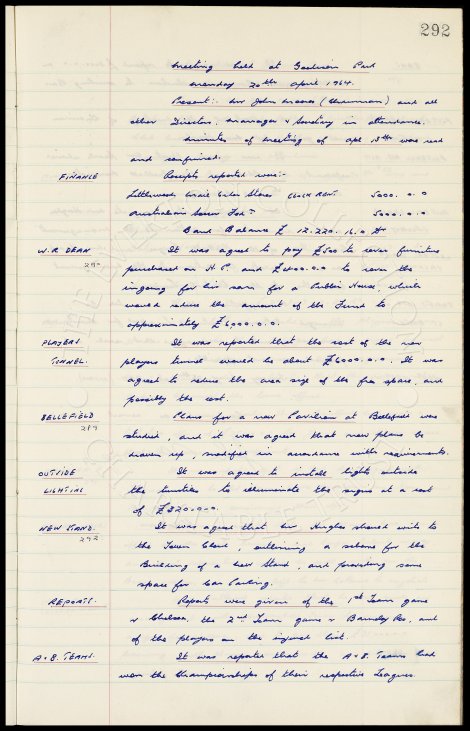 292
Meeting held at Goodison Park
Monday 20th April 1964.
Present:- Mr John Moores (Chairman) and all
other Directors. Manager & Secretary in attendance.
Minutes of meeting of Apl 13th was read
and confirmed.
FINANCE Receipts reported were:-
Littlewoods Mail Order Stores 5000. 0. 0
Australian Soccer Fedn 5000. 0. 0
Bank Balance £ 12.220. 16. 0 Dr
W. R. DEAN It was agreed to pay £500 to cover furniture
purchased on H.P. and to cover the
ingoing for his son for a Public House, which
would reduce the amount of the Fund to
approximately £6,000. 0. 0.
PLAYERS It was reported that the cost of the new
TUNNEL. players tunnel would be about £6000. 0. 0. It was
agreed to reduce the area size of the free space, and
possibly the cost.
BELLEFIELD Plans for a new Pavilion at Bellefield was
289 studied, and it was agreed that new plans be
drawn up, modified in accordance with requirements.
OUTSIDE It was agreed to install lights outside
LIGHTING the turnstiles to illuminate the signs at a cost
of £320-0-0.
NEW STAND. It was agreed that Mr. Hughes should write to
292 the Town Clerk, outlining a scheme for the
Building of a New Stand, and providing some
space for Car Parking.
REPORTS. Reports was given of the 1st Team game
v Chelsea, the 2nd Team game v Barnsley Res, and
of the players on the injured list.
A & B. TEAMS. It was reported that the A & B. Teams had
won the Championships of their respective Leagues.